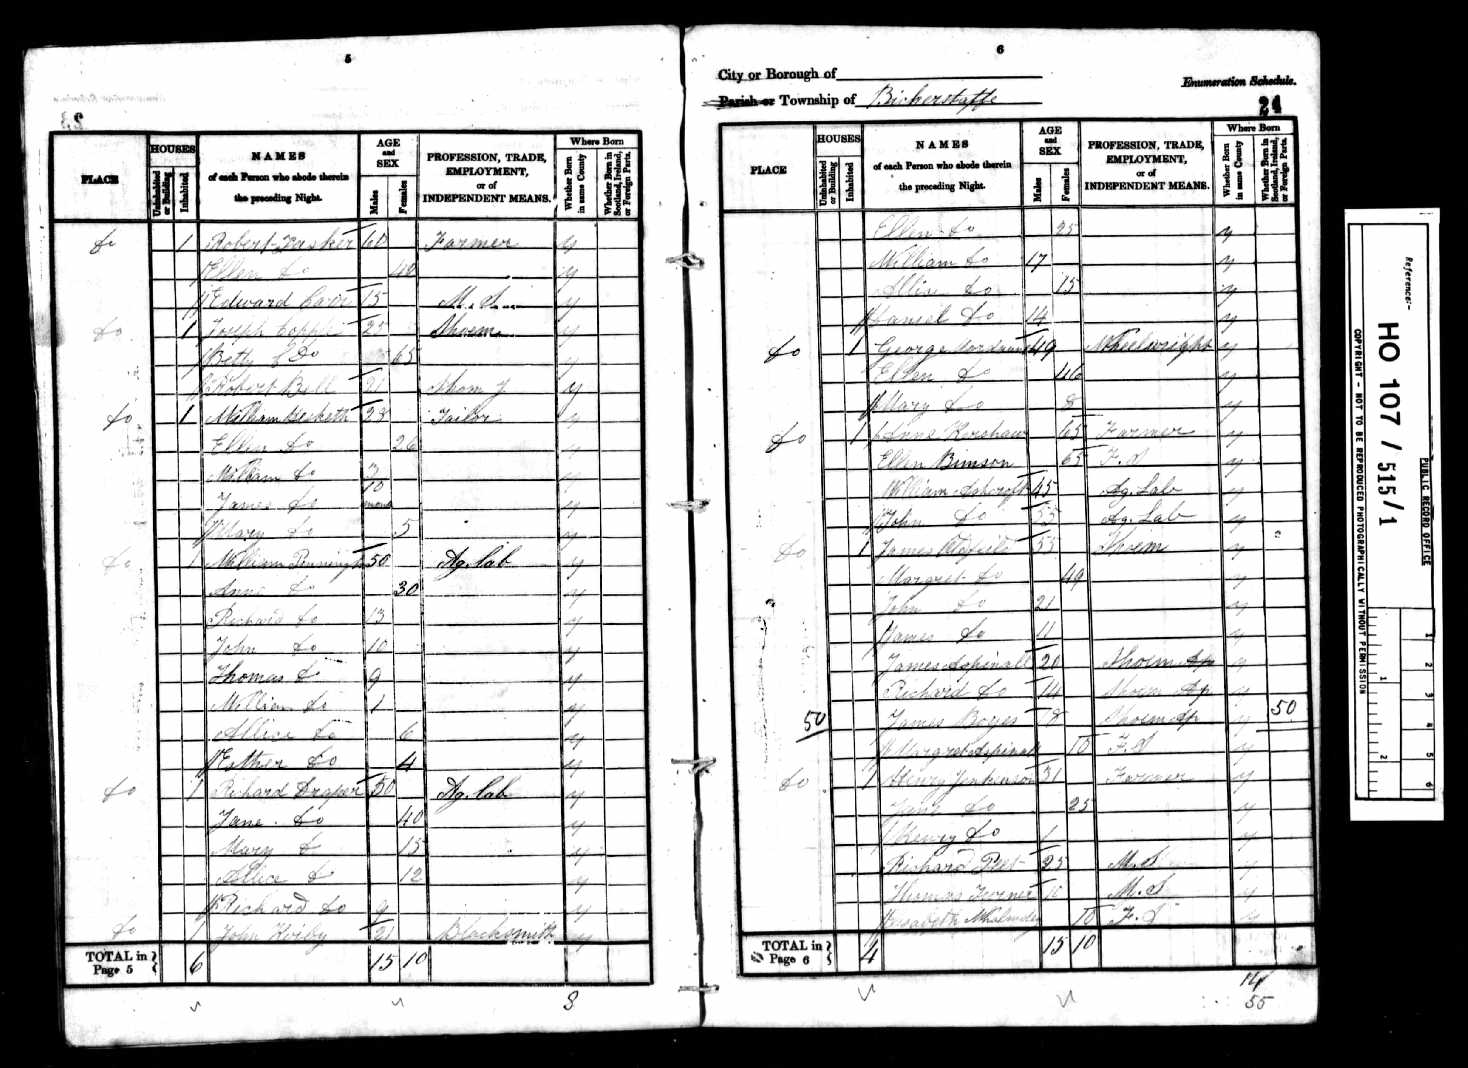 5
PLACE
HOUSES
Uninhabited or Building
Inhabited
NAMES
of each Person who abode therein
the preceding Night.
AGE
and
SEX
Males
Females
PROFESSION, TRADE,
EMPLOYMENT,
or of
INDEPENDENT MEANS.
Where Born
Whether Born in same County
Whether Born in Scotland, Ireland, or Foreign Parts.
do 1 Robert 60 Farmer y
Ellen do 40 y
Edward 15 M. S. y
do 1 Joseph 25 Shoem y
Betty do 65 y
Robert Bell 21 Shoem J y
do 1 William Hesketh 28 Tailor y
Ellen do 26 y
William do 3 y
James do 10 mon y
Mary do 5 y
do 1 William Pinnington 50 Ag. lab y
Ann do 30 y
Richard do 13 y
John do 10 y
Thomas do 9 y
William do 1 y
Allice do 6 y
Esther do 4 y
do 1 Richard Draper 50 Ag. lab y
Jane do 40 y
Mary d 15 y
Allice d 12 y
Richard do 9 y
do 1 John Kirby 21 Blacksmith y
TOTAL in Page 5 6 15 10
8
6
City or Borough of
Enumeration Schedule.
Parish or Township of Bickerstaffe
24
PLACE
HOUSES
Uninhabited or Building
Inhabited
NAMES
of each Person who abode therein
the preceding Night.
AGE
and
SEX
Males
Females
PROFESSION, TRADE,
EMPLOYMENT,
or of
INDEPENDENT MEANS.
Where Born
Whether Born in same County
Whether Born in Scotland, Ireland, or Foreign Parts.
Ellen do 25 y
William do 17 y
Allice do 15 y
Daniel do 14 y
do 1 George 49 Wheelwright y
Ellen do 46 y
Mary do 8 y
do 1 Anne Kershaw 65 Farmer y
Ellen Bimson 65 F. S y
William Ashcroft 45 Ag. Lab y
John do 55 Ag. Lab y
do 1 James 55 Shoem y
Margret do 49 y
John do 21 y
James do 11 y
James Aspinall 20 Shoem Ap y
Richard do 14 Shoem Ap y
50 James 8 Shoem Ap y 50
Margret Aspinall 10 F. S y
do 1 Henry Jenkinson 31 Farmer y
Jane do 25 y
Henry do 1 y
Richard 25 M. S y
Thomas 10 M. S y
10 F. S y
TOTAL in Page 6 4 15 10
14
55
Reference:-
HO 107 / 515/1
PUBLIC RECORD OFFICE
COPYRIGHT - NOT TO BE REPRODUCED PHOTOGRAPHICALLY WITHOUT PERMISSION
1
2
3
4
5
6
1
2